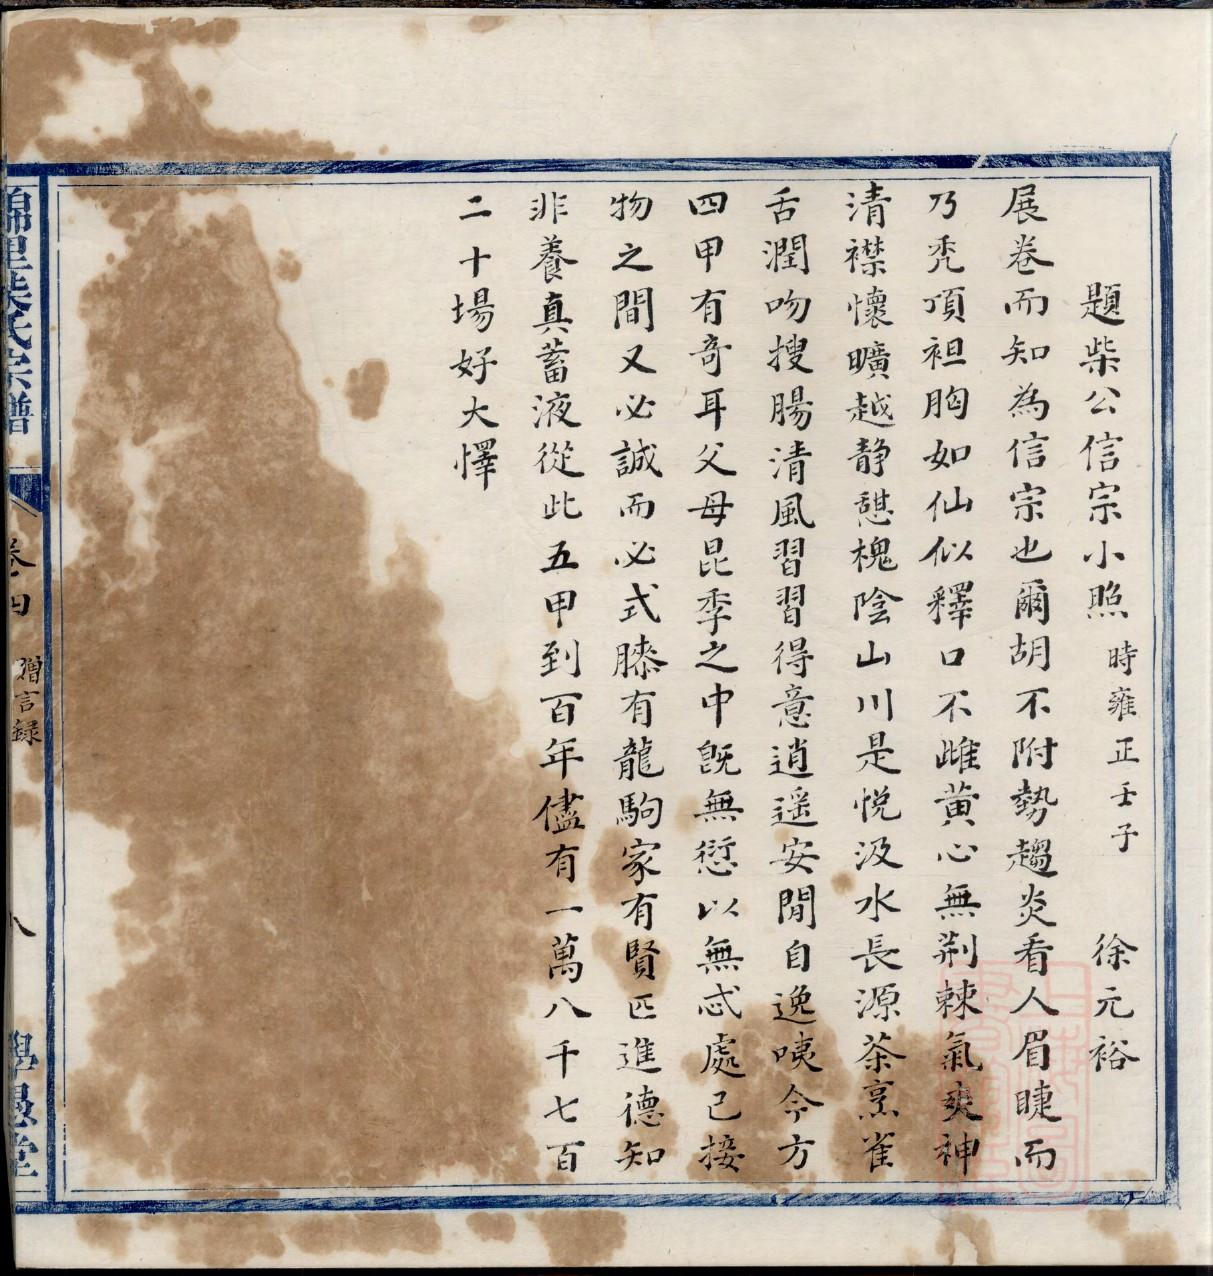 題柴公信宗小照 時雍正壬子 徐元裕
展卷而知為信宗也爾胡不附勢趨炎看人眉睫而
乃禿頂袒胸如仙似釋口不雌黃心無荆棘氣爽神
清襟懷曠越靜憇槐陰山川是悅汲水長源茶烹雀
舌潤吻搜腸清風習習得意逍遥安閒自逸咦今方
四甲有奇耳父母昆季之中旣無愆以無忒處己接
物之間又必誠而必式膝有龍駒家有賢匹進德知
非養真蓄液從此五甲到百年儘有一萬八千七百
二十場好大懌
柴氏宗譜
卷四 贈言録
八
學愚堂